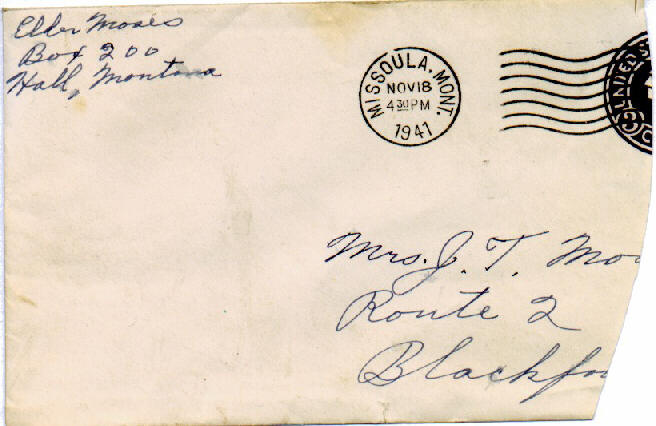 Eller Moses
Box 200
Hall, Montana
MISSOULA, MONT.
NOV 18
4 30 PM
1941
Mrs. J. T. Mo
Route 2
Blackfo